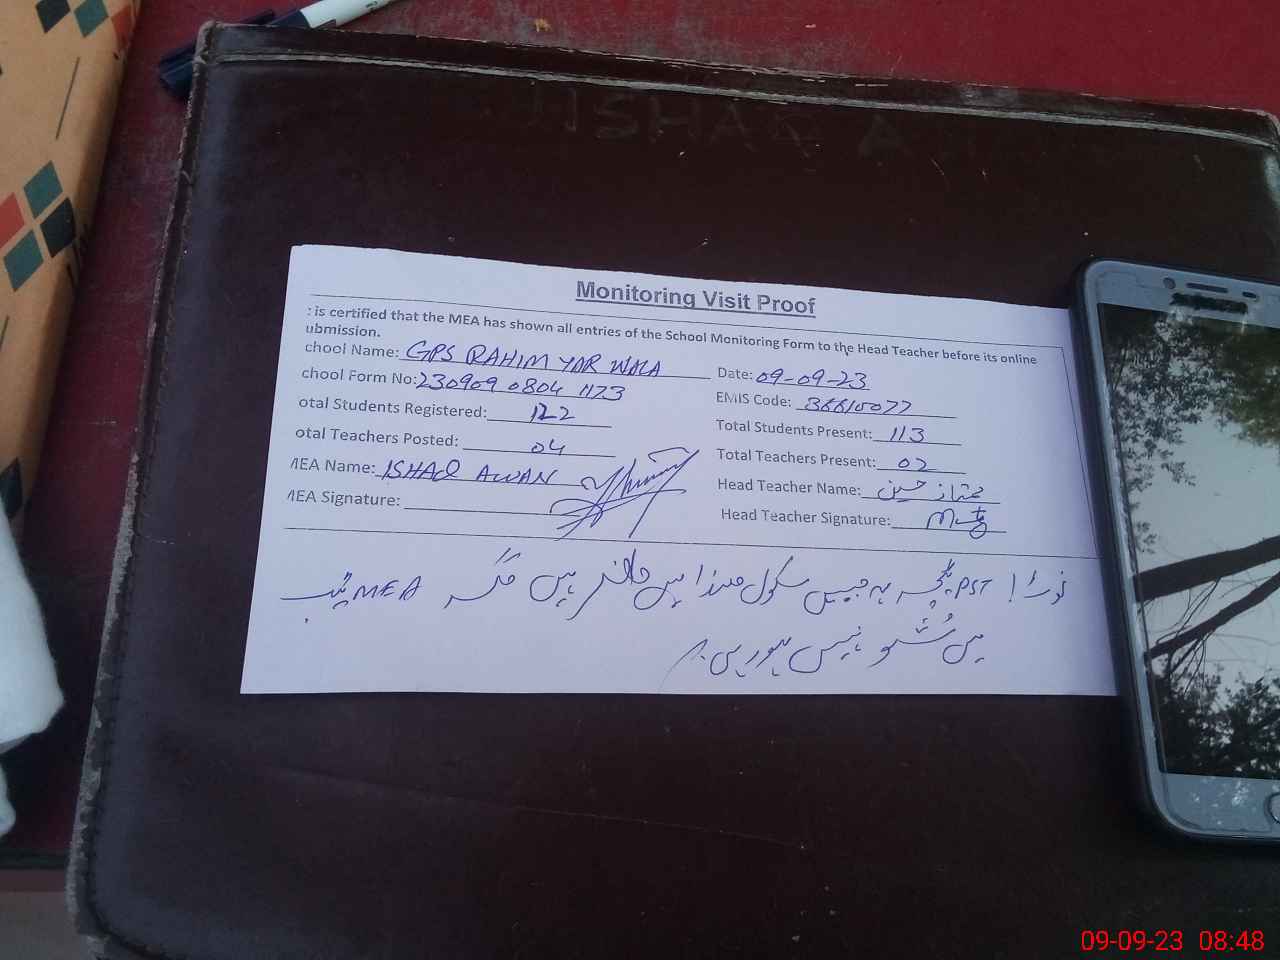 ISHAQ A
Monitoring Visit Proof
: is certified that the MEA has shown all entries of the School Monitoring Form to the Head Teacher before its online
ubmission.
chool Name: GPS RAHIM YAR WALA Date: 09-09-23
chool Form No: 230909 0804 1173 EMIS Code:
otal Students Registered: 122 Total Students Present: 113
otal Teachers Posted: 04 Total Teachers Present: 02
MEA Name: ISHAQ AWAN Head Teacher Name: ممتاز حسین
MEA Signature: Head Teacher Signature:
نوٹ! PST ٹیچر سکول ھذا میں حاضر ہیں مگر MEA ٹیب
میں شو نہیں ہو رہیں۔
09-09-23 08:48